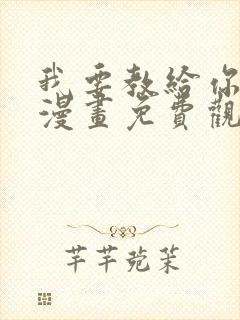 我要教給你
漫畫免費觀
芊芊菀茉